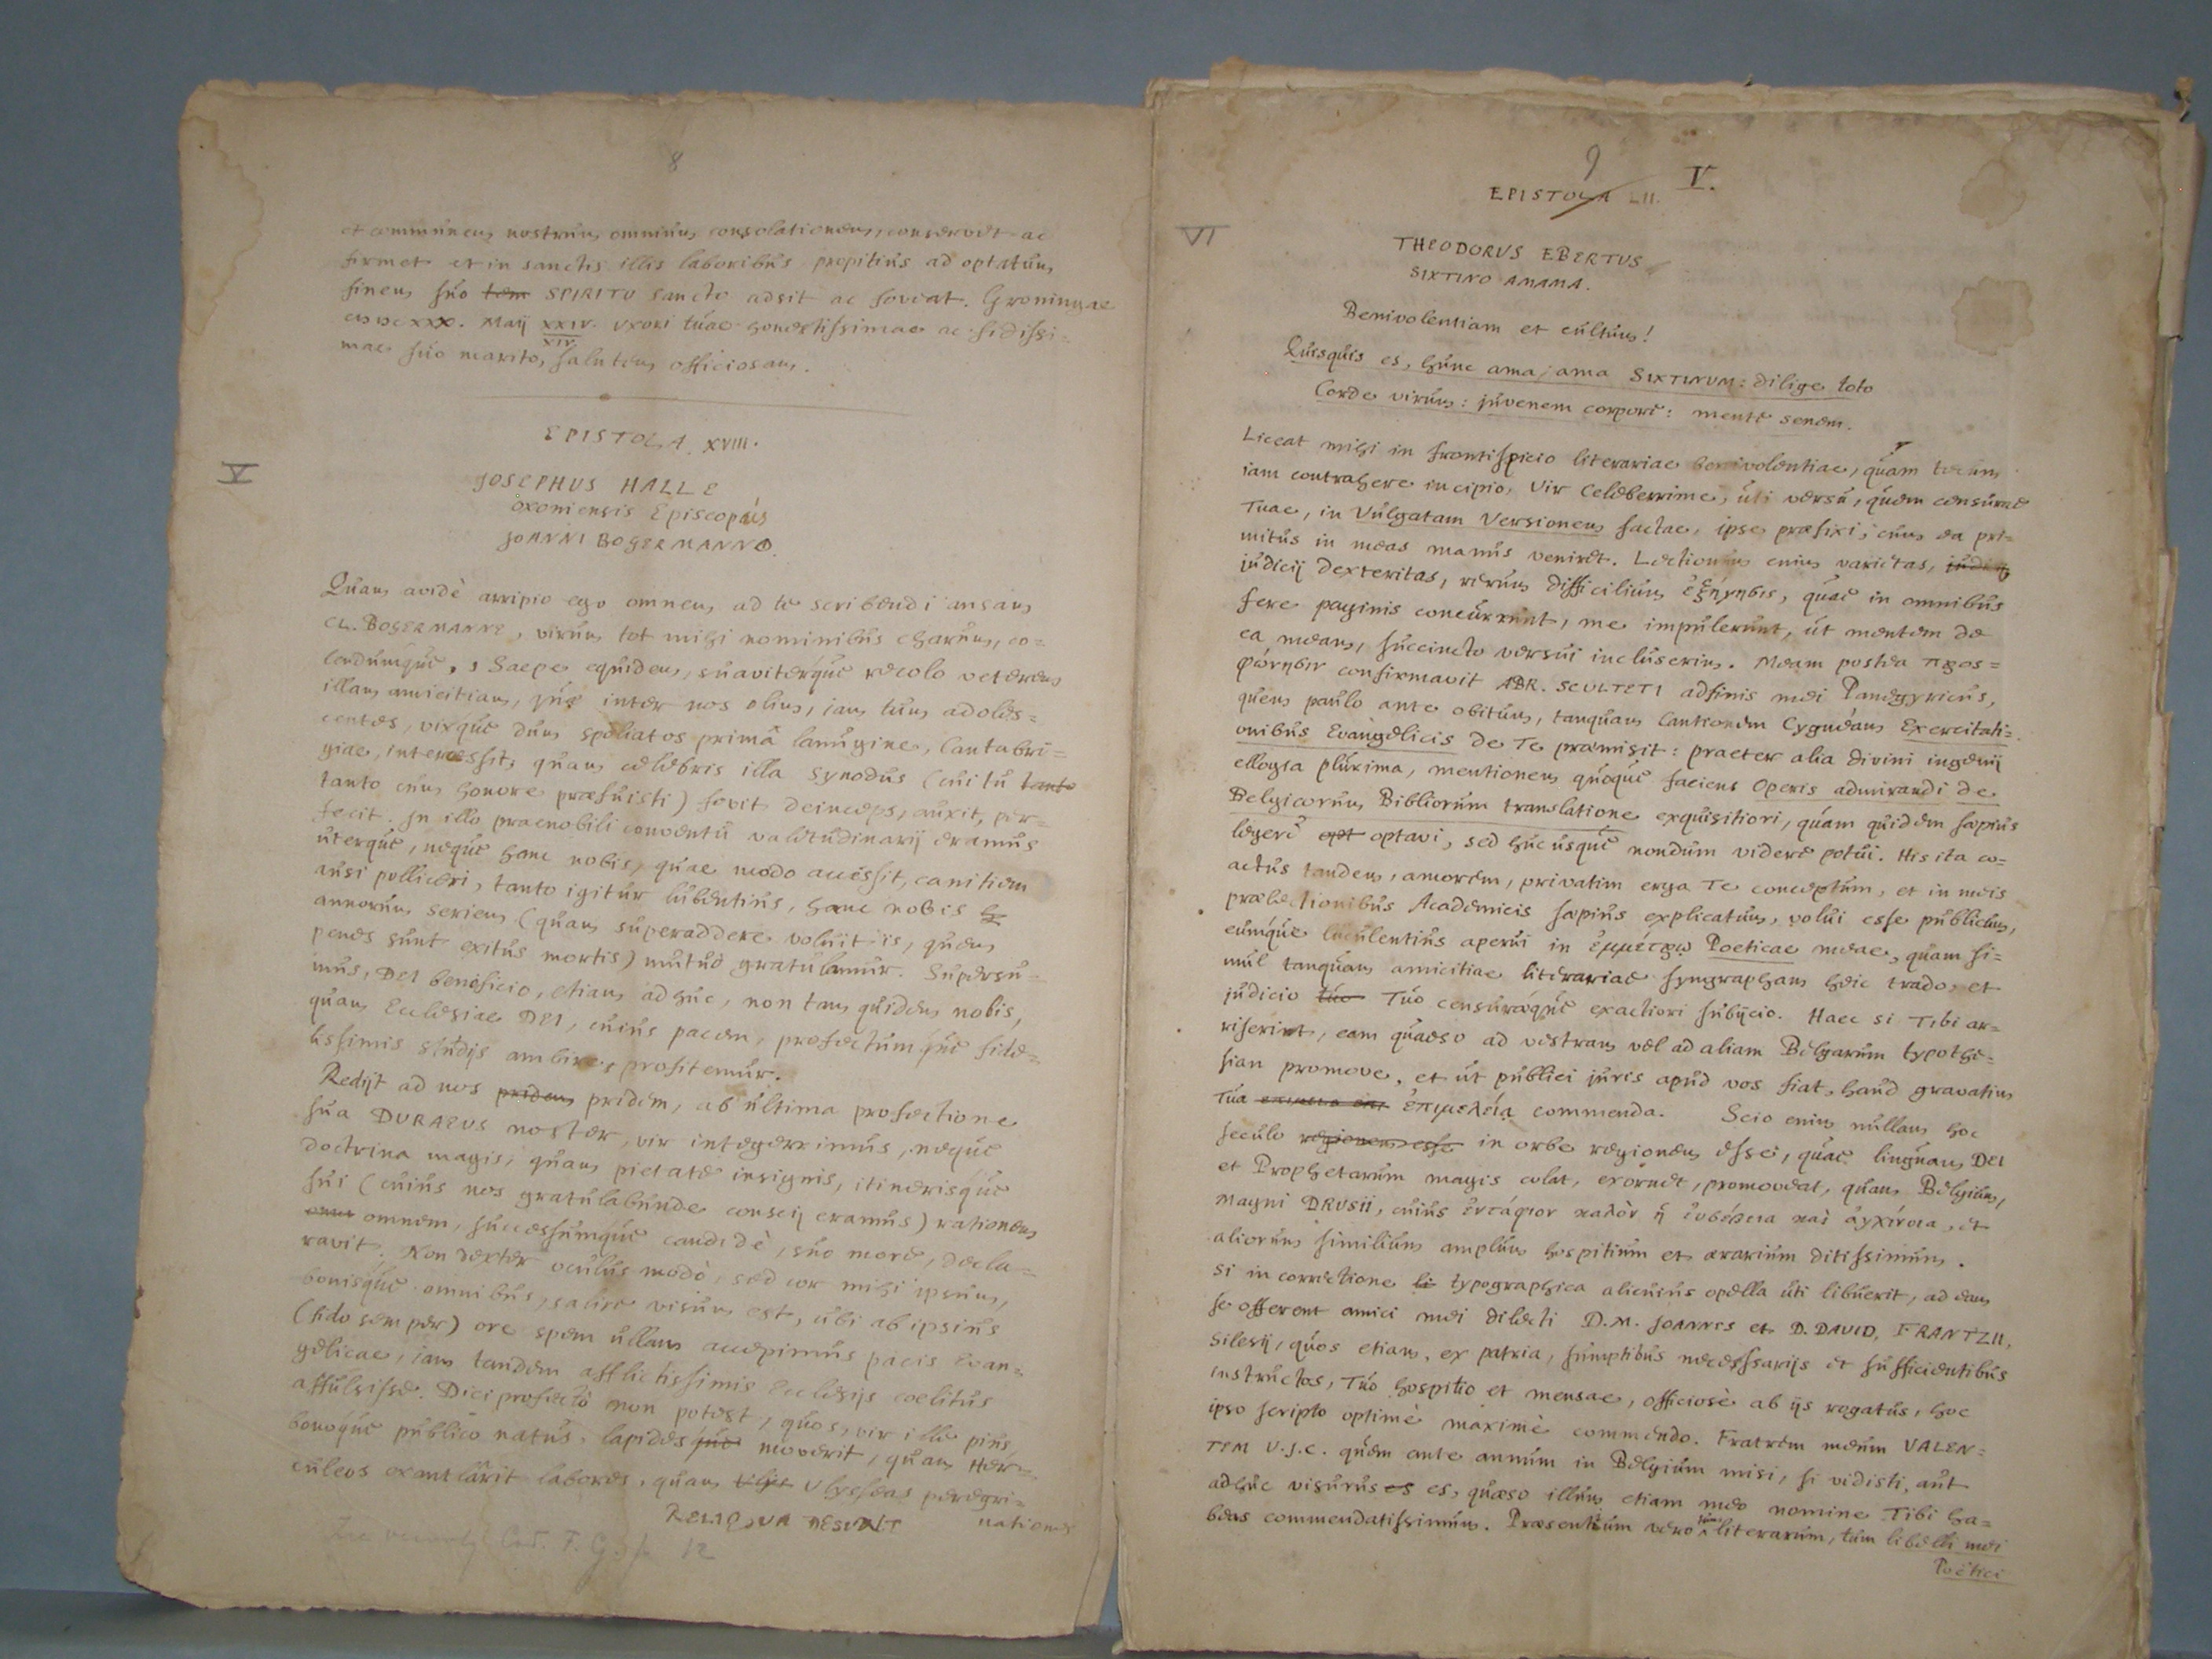 8
et communem nostrum omnium consolationem, conservet ac
firmet et in sanctis illis laboribus propitius ad optatum
finem suo tem SPIRITU sancto adsit ac foveat. Groningae
XXX. Maij XXIV. Uxori tuae honestissimae ac fidissi=
XIV.
mae suo marito, salutem officiosam.
EPISTOLA XVIII.
V
JOSEPHUS HALLE
OXONIENSIS Episcopus
JOANNI BOGERMANNO.
Quam avidè arripio ego omnem ad te scribendi ansam
CL. BOGERMANNE, virum tot mihi nominibus charum, co=
lendumque, Saepe equidem, suaviterque recolo veterem
illam amicitiam, quae inter nos olim, iam tum adoles=
centes, vixque dum spoliatos primâ lanugine, Cantabri=
giae, intercessit, quam celebris illa Synodus (cui tu tanto
tanto cum honore praefuisti) fovit deinceps, auxit, per=
fecit. In illo praenobili conventu valetudinarij eramus
uterque, neque hanc nobis, quae modo accessit, canitiem
ausi polliceri, tanto igitur lubentius, hanc nobis
annorum seriem (quam superaddere voluit is, quem
penes sunt exitus mortis) mutuò gratulamur. Supersu=
mus, DEI beneficio, etiam adhuc, non tam quidem nobis,
quam Ecclesiae DEI, cuius pacem, profectumque fide=
lissimis studijs ambire, profitemur.
Redijt ad nos pridem pridem, ab ultima profectione
sua DURAEUS noster, vir integerrimus, neque
doctrina magis, quam pietate insignis, itinerisque
sui (cuius nos gratulabunde conscij eramus) rationem
omnem, successumque candidè, suo more, decla=
ravit. Non dexter oculus modò, sed cor mihi ipsum,
bonisque omnibus, salire visum est, ubi ab ipsius
(fido semper) ore spem ullam accepimus pacis Evan=
gelicae, iam tandem afflictissimis Ecclesijs coelitus
affulsisse. Dici profectò non potest, quos, vir ille pius,
bonoque publico natus, lapides que moverit, quam Her=
culeos exantlârit labores, quam Ulysseas peregri=
nationes
RELIQVA DESUNT
9
EPISTOLA LII. V.
VI
THEODORUS EBERTUS
SIXTINO AMAMA.
Benivolentiam et cultum!
Quisquis es, hunc ama; ama SIXTINUM: dilige toto
Corde virum: juvenem corpore: mente senem.
Liceat mihi in frontispicio literariae benivolentiae, quam tecum
iam contrahere incipio, Vir Celeberrime, uti versu, quem censurae
Tuae, in Vulgatam Versionem factae, ipse praefixi; cum ea pri=
mitus in meas manus veniret. Lectionum enim varietas,
judicij dexteritas, rerum difficilium ἐξήγησις, quae in omnibus
fere paginis concurrunt, me impulerunt, ut mentem de
ea meam, succincto versui incluserim. Meam postea προσ=
φώνησιν confirmavit ABR. SCULTETI adfinis mei Panegyricus,
quem paulo ante obitum, tanquam Cantionem Cygneam Exercitati=
onibus Evangelicis de Te praemisit: praeter alia divini ingenij
ellogia plurima, mentionem quoque faciens Operis admirandi de
Belgicorum Bibliorum translatione exquisitiori, quam quidem saepius
legere opt optavi, sed hucusque nondum videre potui. His ita co=
actus tandem, amorem, privatim erga Te conceptum, et in meis
praelectionibus Academicis saepius explicatum, volui esse publicum,
eumque luculentius aperui in ἐμμέτρῳ Poeticae meae, quam si=
mul tanquam amicitiae literariae syngrapham heic trado, et
judicio tuo Tuo censuraeque exactiori subijcio. Haec si Tibi ar=
riserint, eam quaeso ad vestram vel ad aliam Belgarum typothe=
sian promove, et ut publici juris apud vos fiat, haud gravatim
Tua ἐπιμελείᾳ commenda. Scio enim nullam hoc
seculo regionem esse in orbe regionem esse, quae linguam DEI
et Prophetarum magis colat, exornet, promoveat, quam Belgium,
Magni DRUSII, cuius ἐντάφιον καλὸν ἡ εὐσέβεια καὶ ἀγχίνοια, et
aliorum similium amplum hospitium et aerarium ditissimum.
Si in correctione li typographica alicuius opella uti libuerit, ad eam
se offerent amici mei dilecti D.M. JOANNES et D. DAVID, FRANTZII,
Silesij, quos etiam, ex patria, sumptibus necessarijs et sufficientibus
instructos, Tuo hospitio et mensae, officiosè ab ijs rogatus, hoc
ipso scripto optimè maximè commendo. Fratrem meum VALEN=
TEM U.J.C. quem ante annum in Belgium misi, si vidisti, aut
adhuc visurus es es, quaeso illum etiam meo nomine Tibi ha=
beas commendatissimum. Praesentium vero tum literarum, tum libelli mei
Poëtici